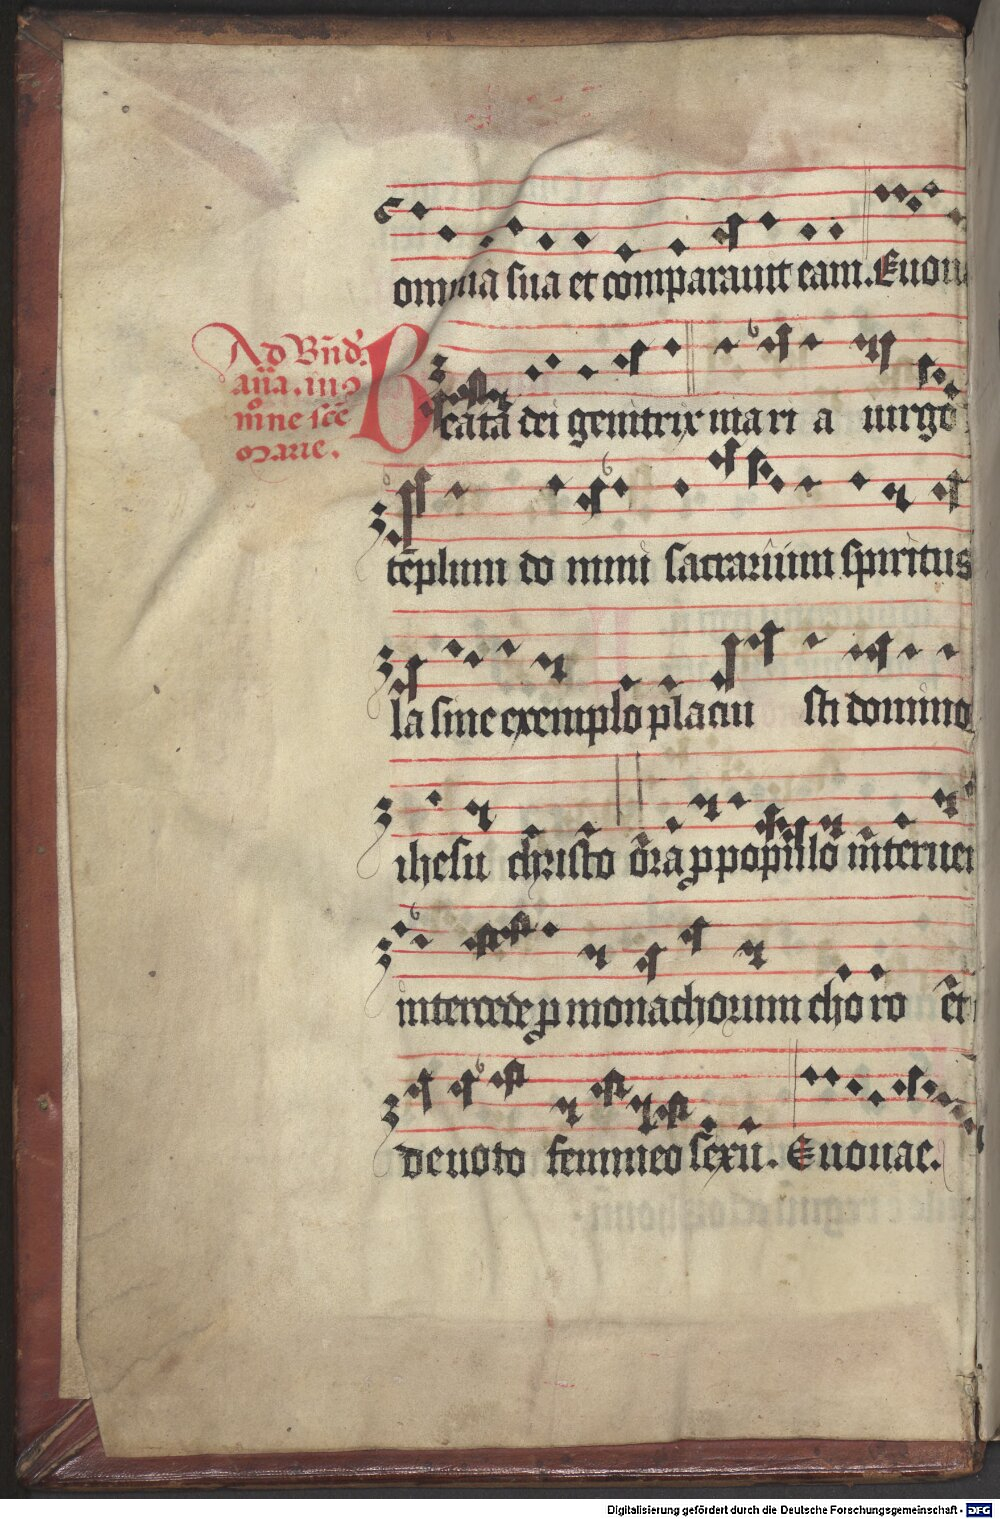 omnia sua et comparauit eam. Euou
Ad Bn̄d.
an̄a. in o
mne scē
marie.
Beata dei genitrix mari a uirgo
tēplum do mini sacrarium spiritus
la sine exemplo placui sti domino
ihesu christo ora p populo interuei
intercede p monachorum choro et
deuoto femineo sexu. Euouae.
Digitalisierung gefördert durch die Deutsche Forschungsgemeinschaft - DFG